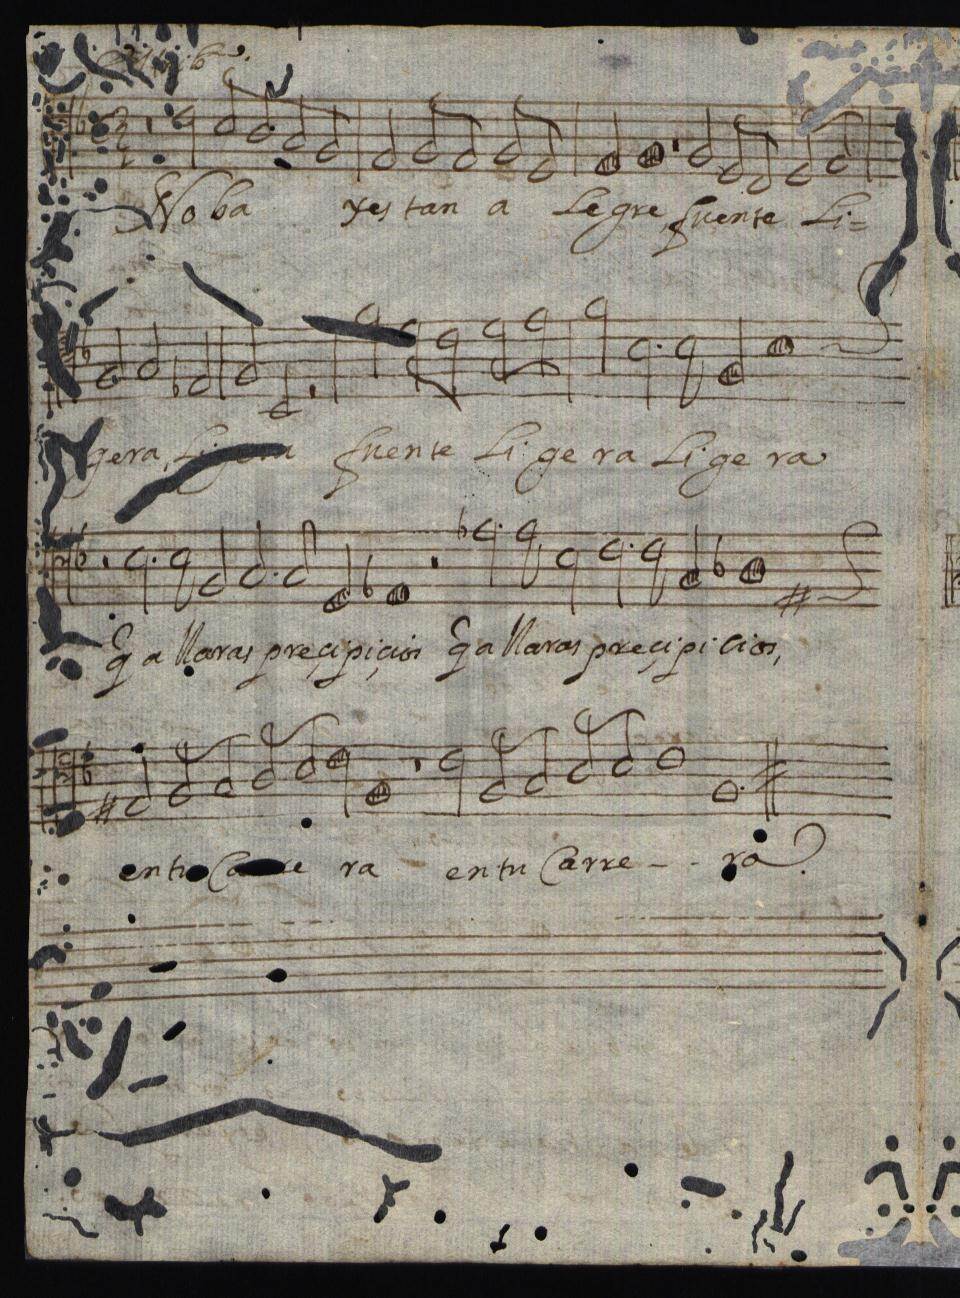 No ba yes tan a legre fuente li=
gera, fuente li ge ra li ge ra
q̃ a llaras preçipiçios q̃ a llaras preçipi cios,
entu Carre ra entu Carre - - ra